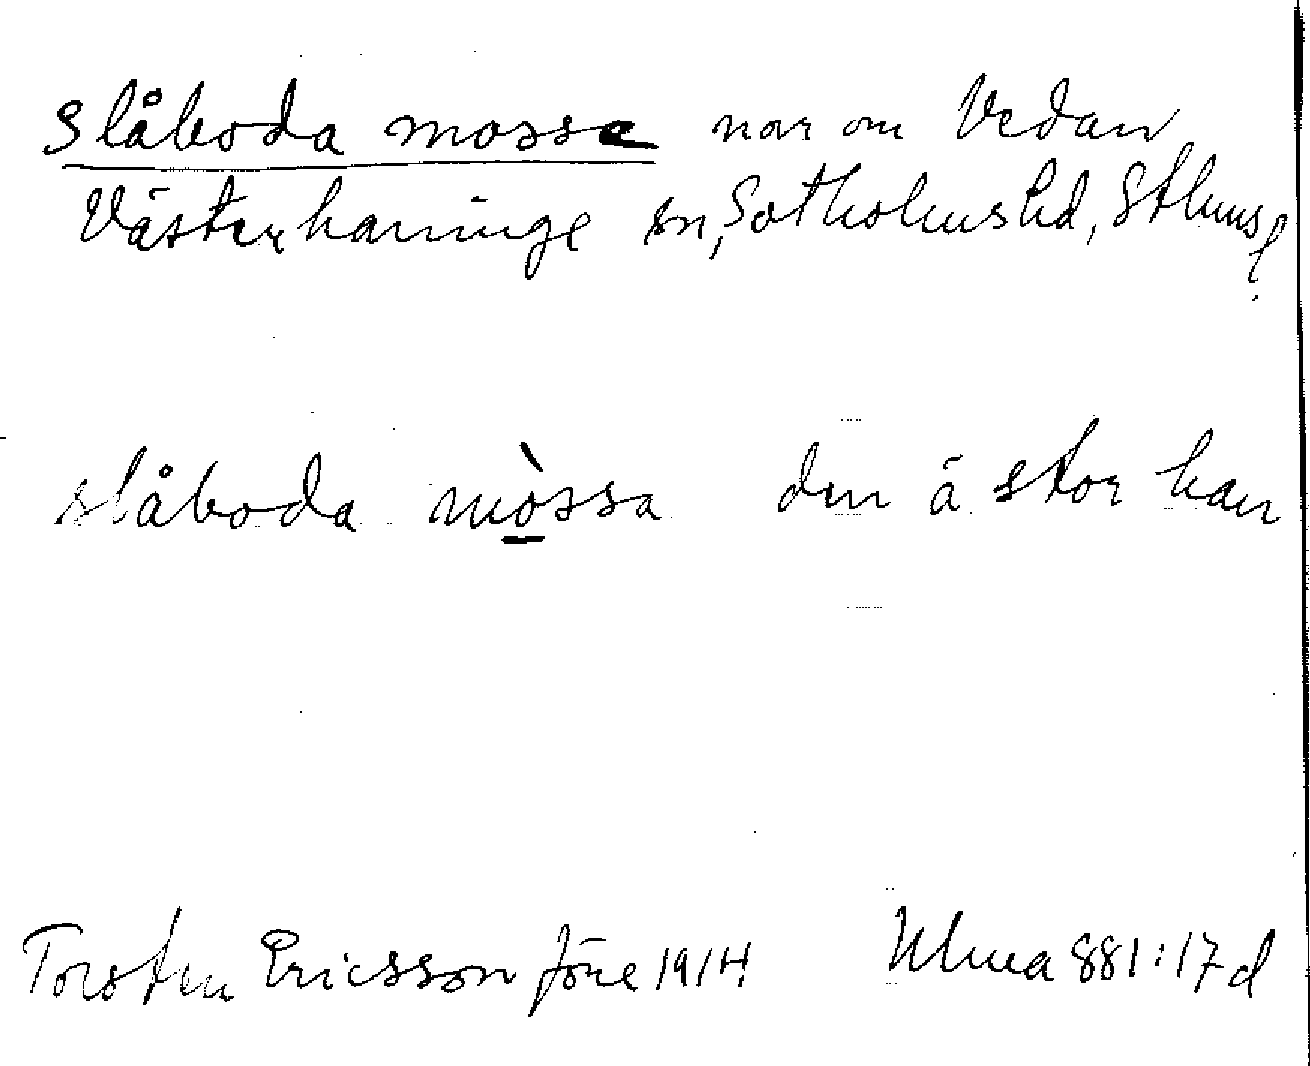 Slåboda mosse nor om Vedan
Västerhaninge sn, Sotholms hd, Sthms l.
slåboda mòssa den ä stor han
Torsten Ericsson före 1914 Ulma 881:17 d